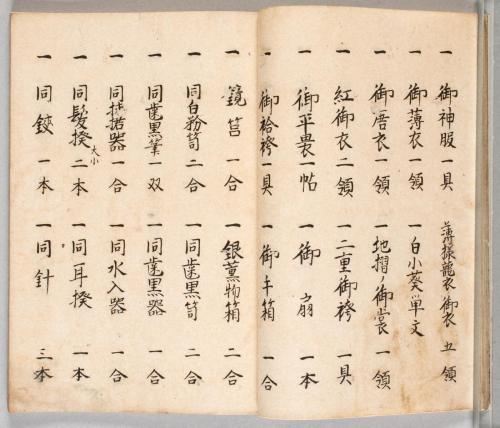 一 御神服 一具 薄様 御衣 五領
一 御薄衣 一領 一 白小葵単文
一 御唐衣 一領 一 地摺ノ御裳 一領
一 紅御衣 二領 一 二重御袴 一具
一 御平 一帖 一 御扇 一本
一 御袷袴 一具 一 御 箱 一合
一 鏡筥 一合 一 銀薫物箱 二合
一 同白粉笥 二合 一 同歯黒笥 二合
一 同歯黒筆 一双 一 同歯黒器 一合
一 同 器 一合 一 同水入器 一合
一 同髪掻 大小 二本 一 同耳掻 一本
一 同鋏 一本 一 同針 三本